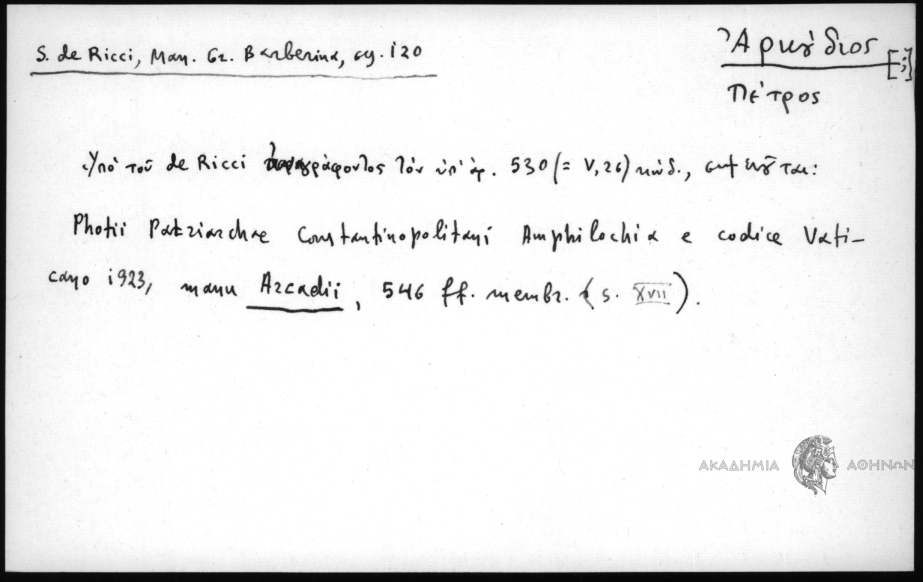 S. de Ricci, Man. Gr. Barberina, σγ. 120
Ἀρκάδιος [;]
Πέτρος
Ὑπό τοῦ de Ricci περιγράφοντος τόν ὑπ' ἀρ. 530 (= V, 26) κώδ.,
Photii Patriarchae Constantinopolitani Amphilochia e codice Vati-
cano 1923, manu Arcadii, 546 ff. membr. (s. XVII).
ΑΚΑΔΗΜΙΑ ΑΘΗΝΩΝ